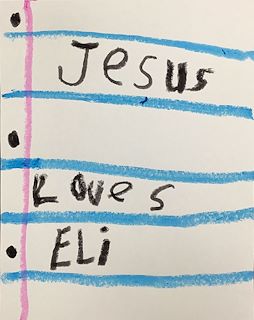 Jesus
Loves
Eli